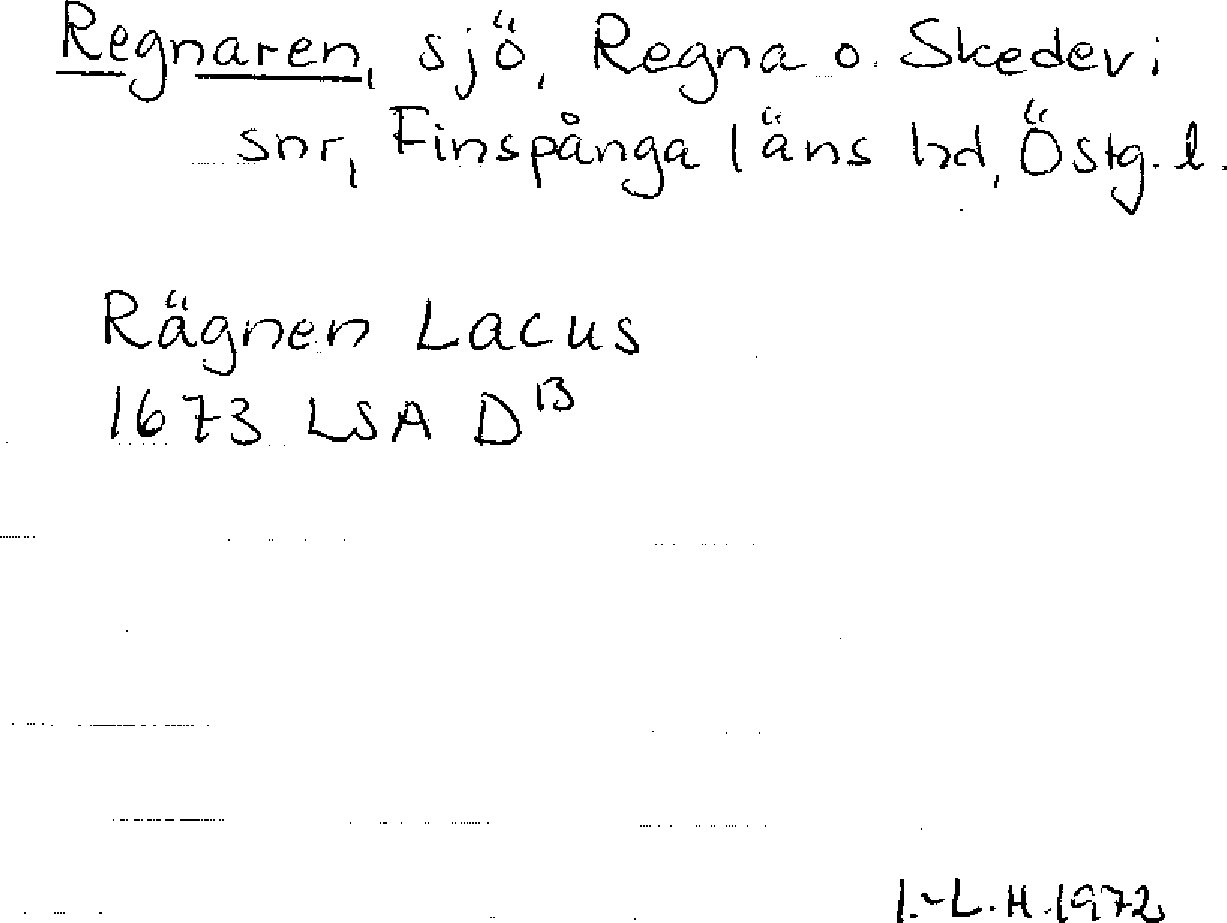 Regnaren, sjö, Regna o. Skedevi
snr, Finspånga läns hd, Östg. l.
Rägnen Lacus
1673 LSA D^B
I.-L.H. 1972